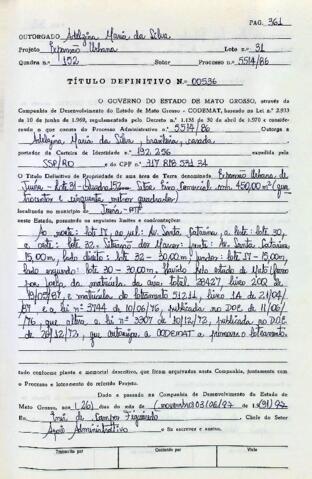 PAG. 361
OUTORGADO Adelzina Maria da Silva
Projeto Expansão Urbana Lote n.º 31
Quadra n.º 152 Setor Processo n.º 5514/86
TÍTULO DEFINITIVO N.º 00536
O GOVERNO DO ESTADO DE MATO GROSSO, através da
Companhia de Desenvolvimento do Estado de Mato Grosso - CODEMAT, baseado na Lei n.º 2.933
de 10 de junho de 1.969, regulamentada pelo Decreto n.º 1.138 de 30 de abril de 1.970 e conside-
rando o que consta do Processo Administrativo n.º 5514/86 Outorga a
Adelzina Maria da Silva, brasileira, casada
portador da Carteira de Identidade n.º 192.256 expedida pela
SSP/RO e do CPF n.º 317 818 531 34
O Título Definitivo de Propriedade de uma área de Terra denominada Expansão Urbana de
Juína - Lote 31 - Quadra 152 Setor Eixo Comercial com 450,00 m² (quatrocentos e cinquenta metros quadrados)
localizado no município de Juína - MT
neste Estado, possuindo os seguintes limites e confrontações:
Ao norte: lote 17, ao sul: Av. Santa Catarina, a leste: lote 30,
a oeste: lote 32. Frente: Av. Santa Catarina
15,00m, lado direito: lote 32 - 30,00m, fundos: lote 17 - 15,00m,
lado esquerdo: lote 30 - 30,00m. Havido pelo estado de Mato Grosso
por força da matrícula da área total 28427, livro 2
e matrícula do loteamento livro
a lei nº 3744 de 10/06/76, publicada no D.O.E. de 11/06/
76, que altera a lei nº 3307 de 10/12/72, publicada no D.O.E.
de 20/12/72, que autoriza a CODEMAT a promover o loteamento.
tudo conforme planta e memorial descritivo, que ficam arquivados nesta Companhia, juntamente com
o Processo e loteamento do referido Projeto.
Dado e passado na Companhia de Desenvolvimento do Estado de
Mato Grosso, aos (26) dias do mês de (novembro)
Eu José de Campos Figueiredo Chefe do Setor
Apoio Administrativo o fiz escrever e assino.
Transcrito por Conferido por Visto